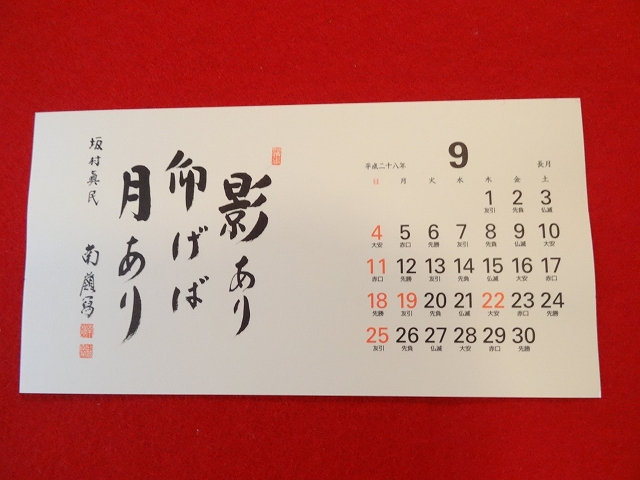 影あり
仰げば
月あり
坂村眞民
南嶺写
平成二十八年 9 長月
日 月 火 水 木 金 土
1 2 3
友引 先負 仏滅
4 5 6 7 8 9 10
大安 赤口 先勝 友引 先負 仏滅 大安
11 12 13 14 15 16 17
赤口 先勝 友引 先負 仏滅 大安 赤口
18 19 20 21 22 23 24
先勝 友引 先負 仏滅 大安 赤口 先勝
25 26 27 28 29 30
友引 先負 仏滅 大安 赤口 先勝